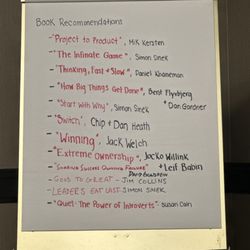 Book Recommendations
- "Project to Product", Mik Kersten
- "The Infinate Game", Simon Sinek
- "Thinking, Fast + Slow", Daniel Khaneman
- "How Big Things Get Done", Bent Flyvbjerg
+ Dan Gardner
- "Start with Why", Simon Sinek
- "Switch", Chip + Dan Heath
- "Winning", Jack Welch
- "Extreme Ownership", Jocko Willink
+ Leif Babin
David
- GOOD TO GREAT - JIM COLLINS
- LEADERS EAT LAST - SIMON SINEK
- "Quiet: The Power of Introverts" - Susan Cain